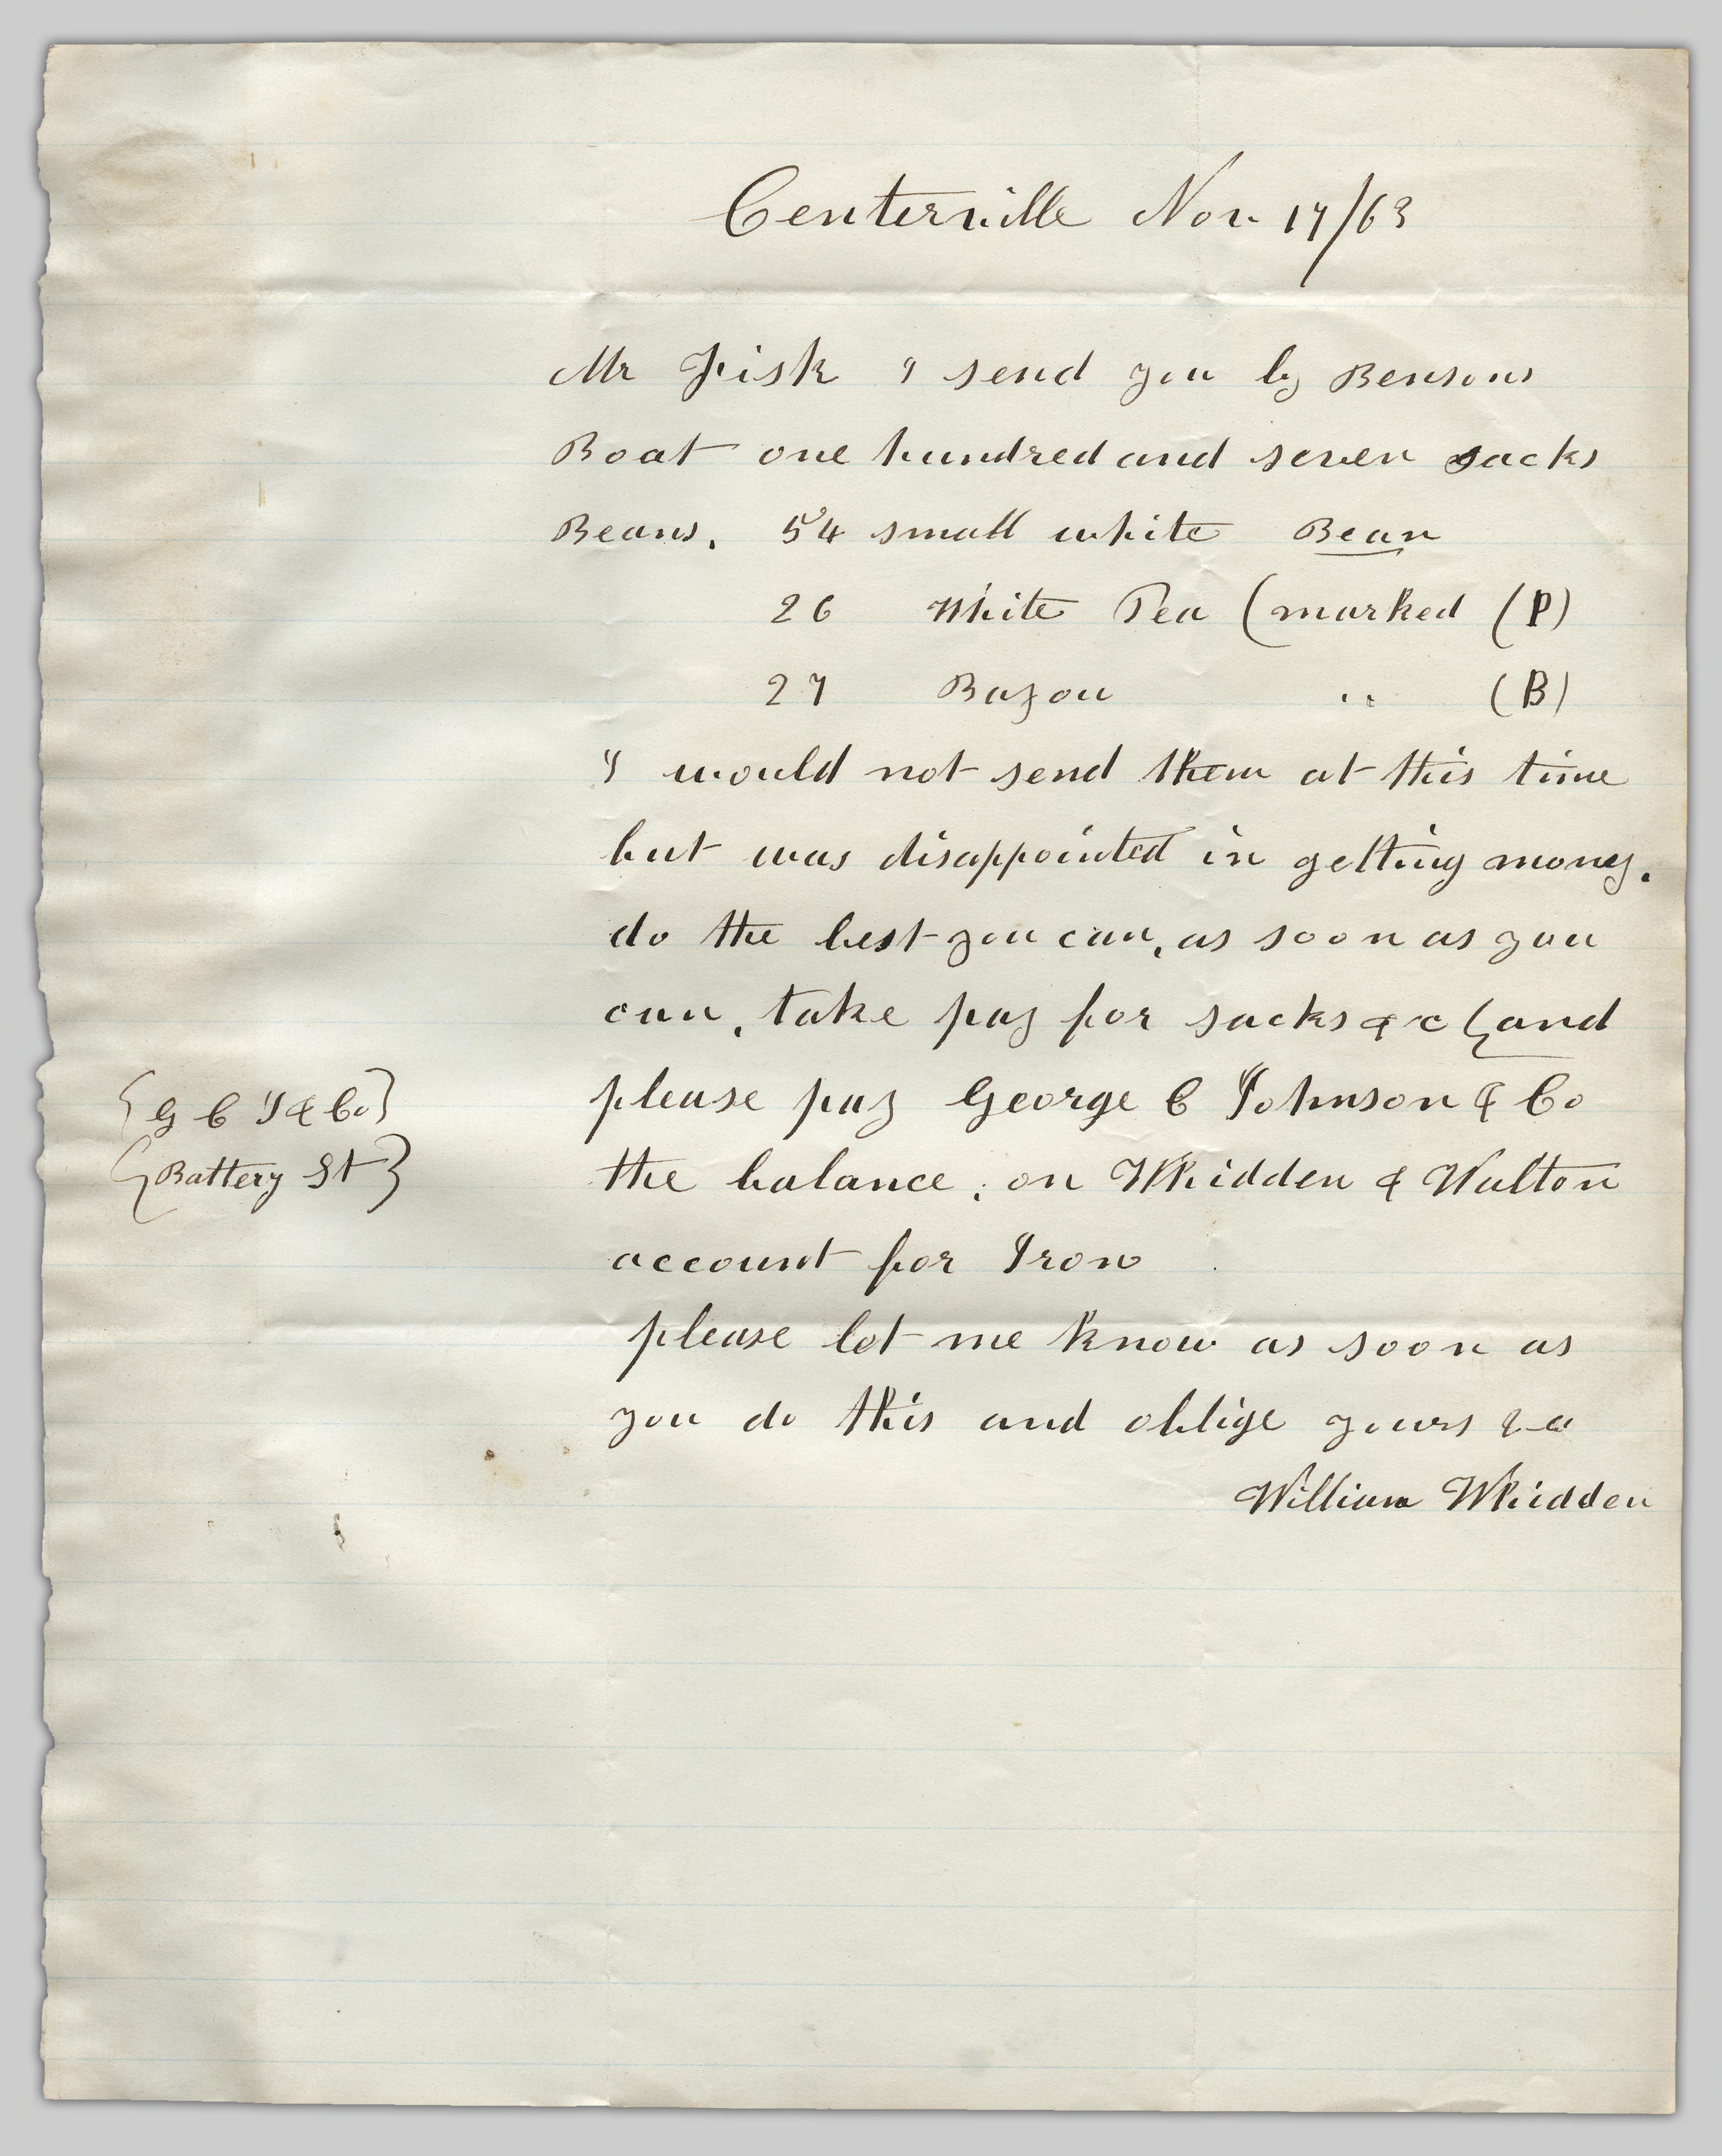 Centerville Nov 17/63
Mr Fisk I send you by Bensons
Boat one hundred and seven sacks
Beans. 54 small white Bean
26 White Pea (marked (P)
27 Bayou " (B)
I would not send them at this time
but was disappointed in getting money.
do the best you can, as soon as you
can, take pay for sacks &c (and
please pay George C Johnson & Co
{G C J & Co}
the balance, on Whidden & Walton
{Battery St}
account for Iron
please let me know as soon as
you do this and oblige yours &c
William Whidden